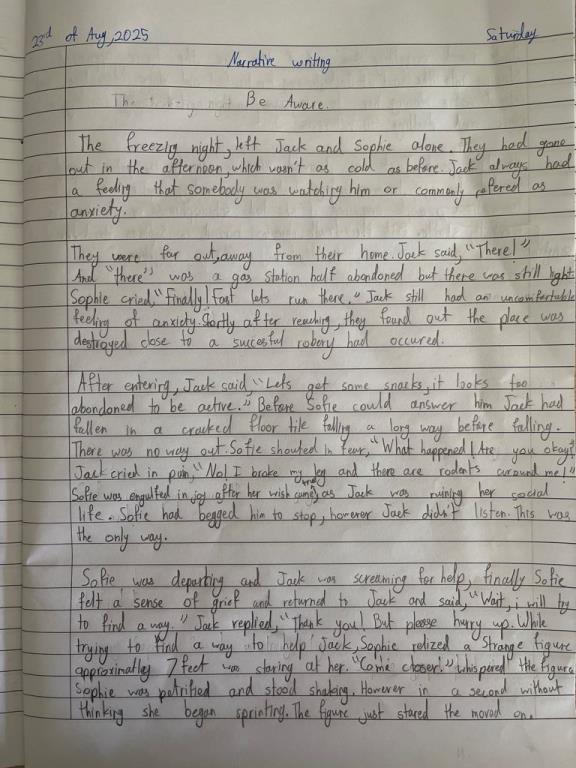 23rd of Aug,2025 Saturday
Narrative writing
Be Aware.
The freezig night, left Jack and Sophie alone. They had gone
out in the afternoon, which wasn't as cold as before. Jack always had
a feeling that somebody was watching him or commonly refered as
anxiety.
They were far out, away from their home. Jack said, "There!"
And "there" was a gas station half abandoned but there was still light.
Sophie cried, "Finally! Fast lets run there." Jack still had an uncomfortable
feeling of anxiety. Shortly after reaching, they found out the place was
destroyed close to a succesful robery had occured.
After entering, Jack said, "Lets get some snacks, it looks too
abondoned to be active." Before Sofie could answer him Jack had
fallen in a cracked floor tile falling a long way before falling.
There was no way out. Sofie shouted in fear, "What happened! Are you okay?
Jack cried in pain, "No! I broke my leg and there are rodents around me!"
Sofie was engulfed in joy after her wish came true, as Jack was ruining her social
life. Sofie had begged him to stop, however Jack didn't listen. This was
the only way.
Sofie was departing and Jack was screaming for help, finally Sofie
felt a sense of grief and returned to Jack and said, "Wait, i will try
to find a way." Jack replied, "Thank you! But please hurry up. While
trying to find a way to help Jack, Sophie relized a Strange figure
approximatley 7 feet was staring at her. "Come closer!" whispered the figure
Sophie was petrified and stood shaking. However in a second without
thinking she began sprinting. The figure just stared the moved on.